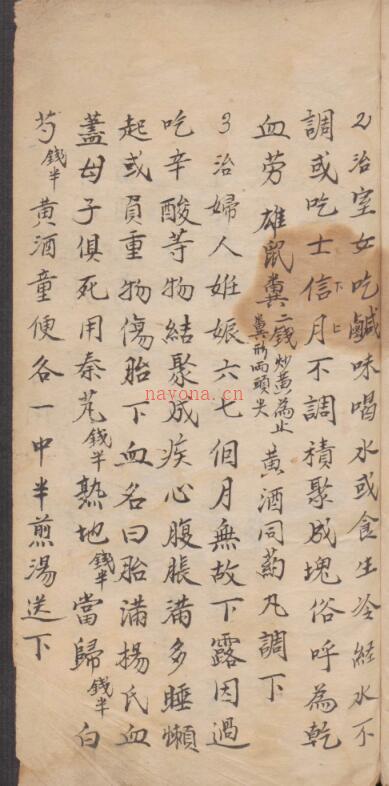 2治室女吃鹹味喝水或食生冷経水不
調或吃土信月不調積聚成塊俗呼為乾
下上
血劳雄鼠糞二錢炒黃為止糞形两頭尖黃酒同药丸調下
3治婦人姙娠六七個月無故下露因過
吃辛酸等物結聚成疾心腹脹滿多睡懶
起或負重物傷胎下血名曰胎滿揚氏血
蓋母子俱死用秦艽錢半熟地錢半當歸錢半白
芍錢半黃酒童便各一中半煎湯送下
nayona.cn